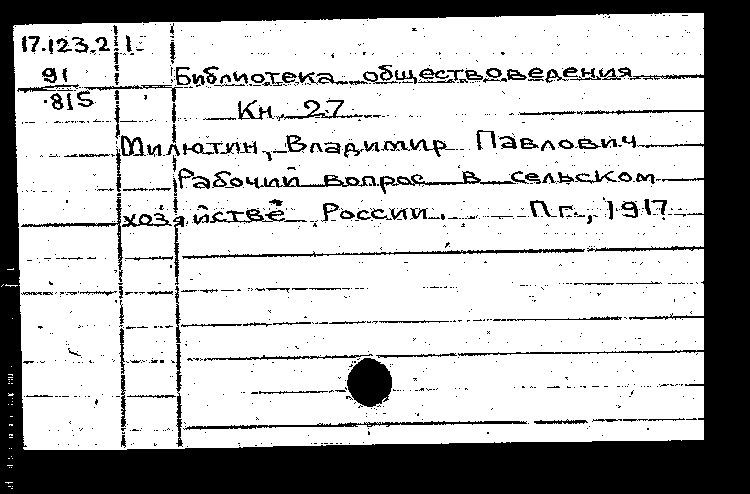 17.123.2 1.
91 Библиотека обществоведения
815 Кн. 27
Милютин, Владимир Павлович
Рабочий вопрос в сельском
хозяйстве России. Пг., 1917